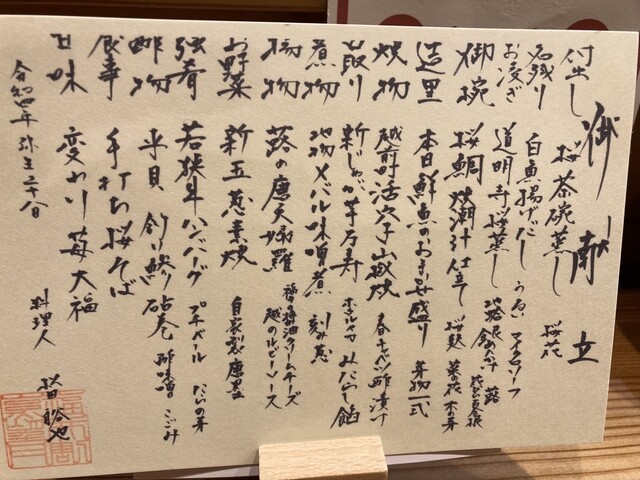 御献立
付出し 桜茶碗蒸し 桜花
名残り 白魚揚げだし うるい マイクロリーフ
お凌ぎ 道明寺桜蒸し 蕗
御椀 桜鯛炊潮汁仕立 桜麩 菜の花 木の芽
造里 本日鮮魚のおまかせ盛り 芽物一式
焼物 越前活穴子山椒焼 春キャベツ酢漬け
蓋り 新じゃが芋万寿 ホタルイカ みたらし餡
煮物 地物メバル味噌煮 刻み葱
揚物 蕗の唐天婦羅 福井醤油クリームチーズ 越のルビーソース
お野菜 新玉葱素焼 自家製唐墨
強肴 若狭牛ハンバーグ プチベール たらの芽
酢物 平貝 釣り鯵砧巻 酢味噌 こごみ
食事 手打ち桜そば
甘味 変わり苺大福
令和四年弥生二十八日
料理人